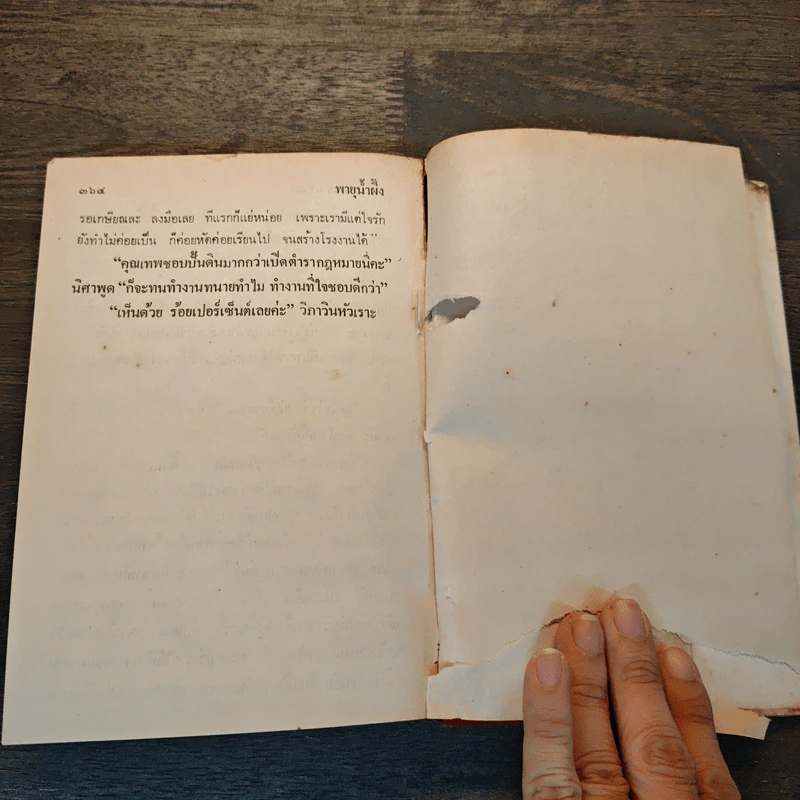 ๓๖๔ พายุน้ำผึ้ง
รอเกษียณละ ลงมือเลย ทีแรกก็แย่หน่อย เพราะเรามีแต่ใจรัก
ยังทำไม่ค่อยเป็น ก็ค่อยหัดค่อยเรียนไป จนสร้างโรงงานได้”
“คุณเทพชอบปั้นดินมากกว่าเปิดตำรากฎหมายนี่คะ”
นิศาพูด “ก็จะทนทำงานทนายทำไม ทำงานที่ใจชอบดีกว่า”
“เห็นด้วย ร้อยเปอร์เซ็นต์เลยค่ะ” วิภาวินหัวเราะ